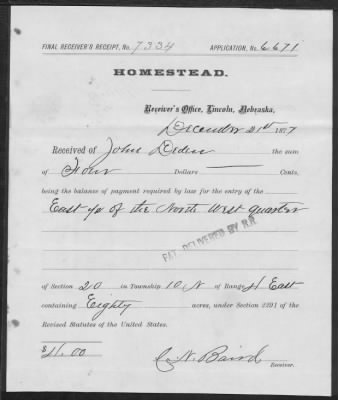 FINAL RECEIVER'S RECEIPT, No. 7334 APPLICATION, No. 6671
HOMESTEAD.
Receiver's Office, Lincoln, Nebraska,
December 21st 1877
Received of John the sum
of Four Dollars Cents,
being the balance of payment required by law for the entry of the
East ½ of the North West quarter
PAT. DELIVERED BY R.R.
of Section 20 in Township 10 N of Range 4 East
containing Eighty acres, under Section 2291 of the
Revised Statutes of the United States.
$4.00
C. N. Baird
Receiver.